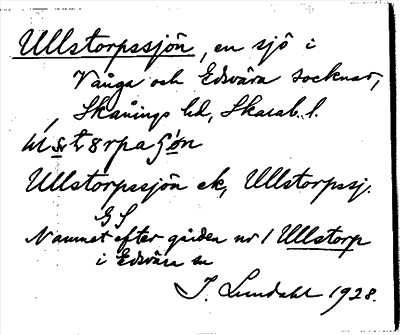 Ullstorpssjön, en sjö i
Vånga och Edsvära socknar,
Skånings hd, Skarab. l.
Ullstorpssjön ek, Ullstorpssj.
GS
Namnet efter gården nr 1 Ullstorp
i Edsvära sn
J. Lundahl 1928.